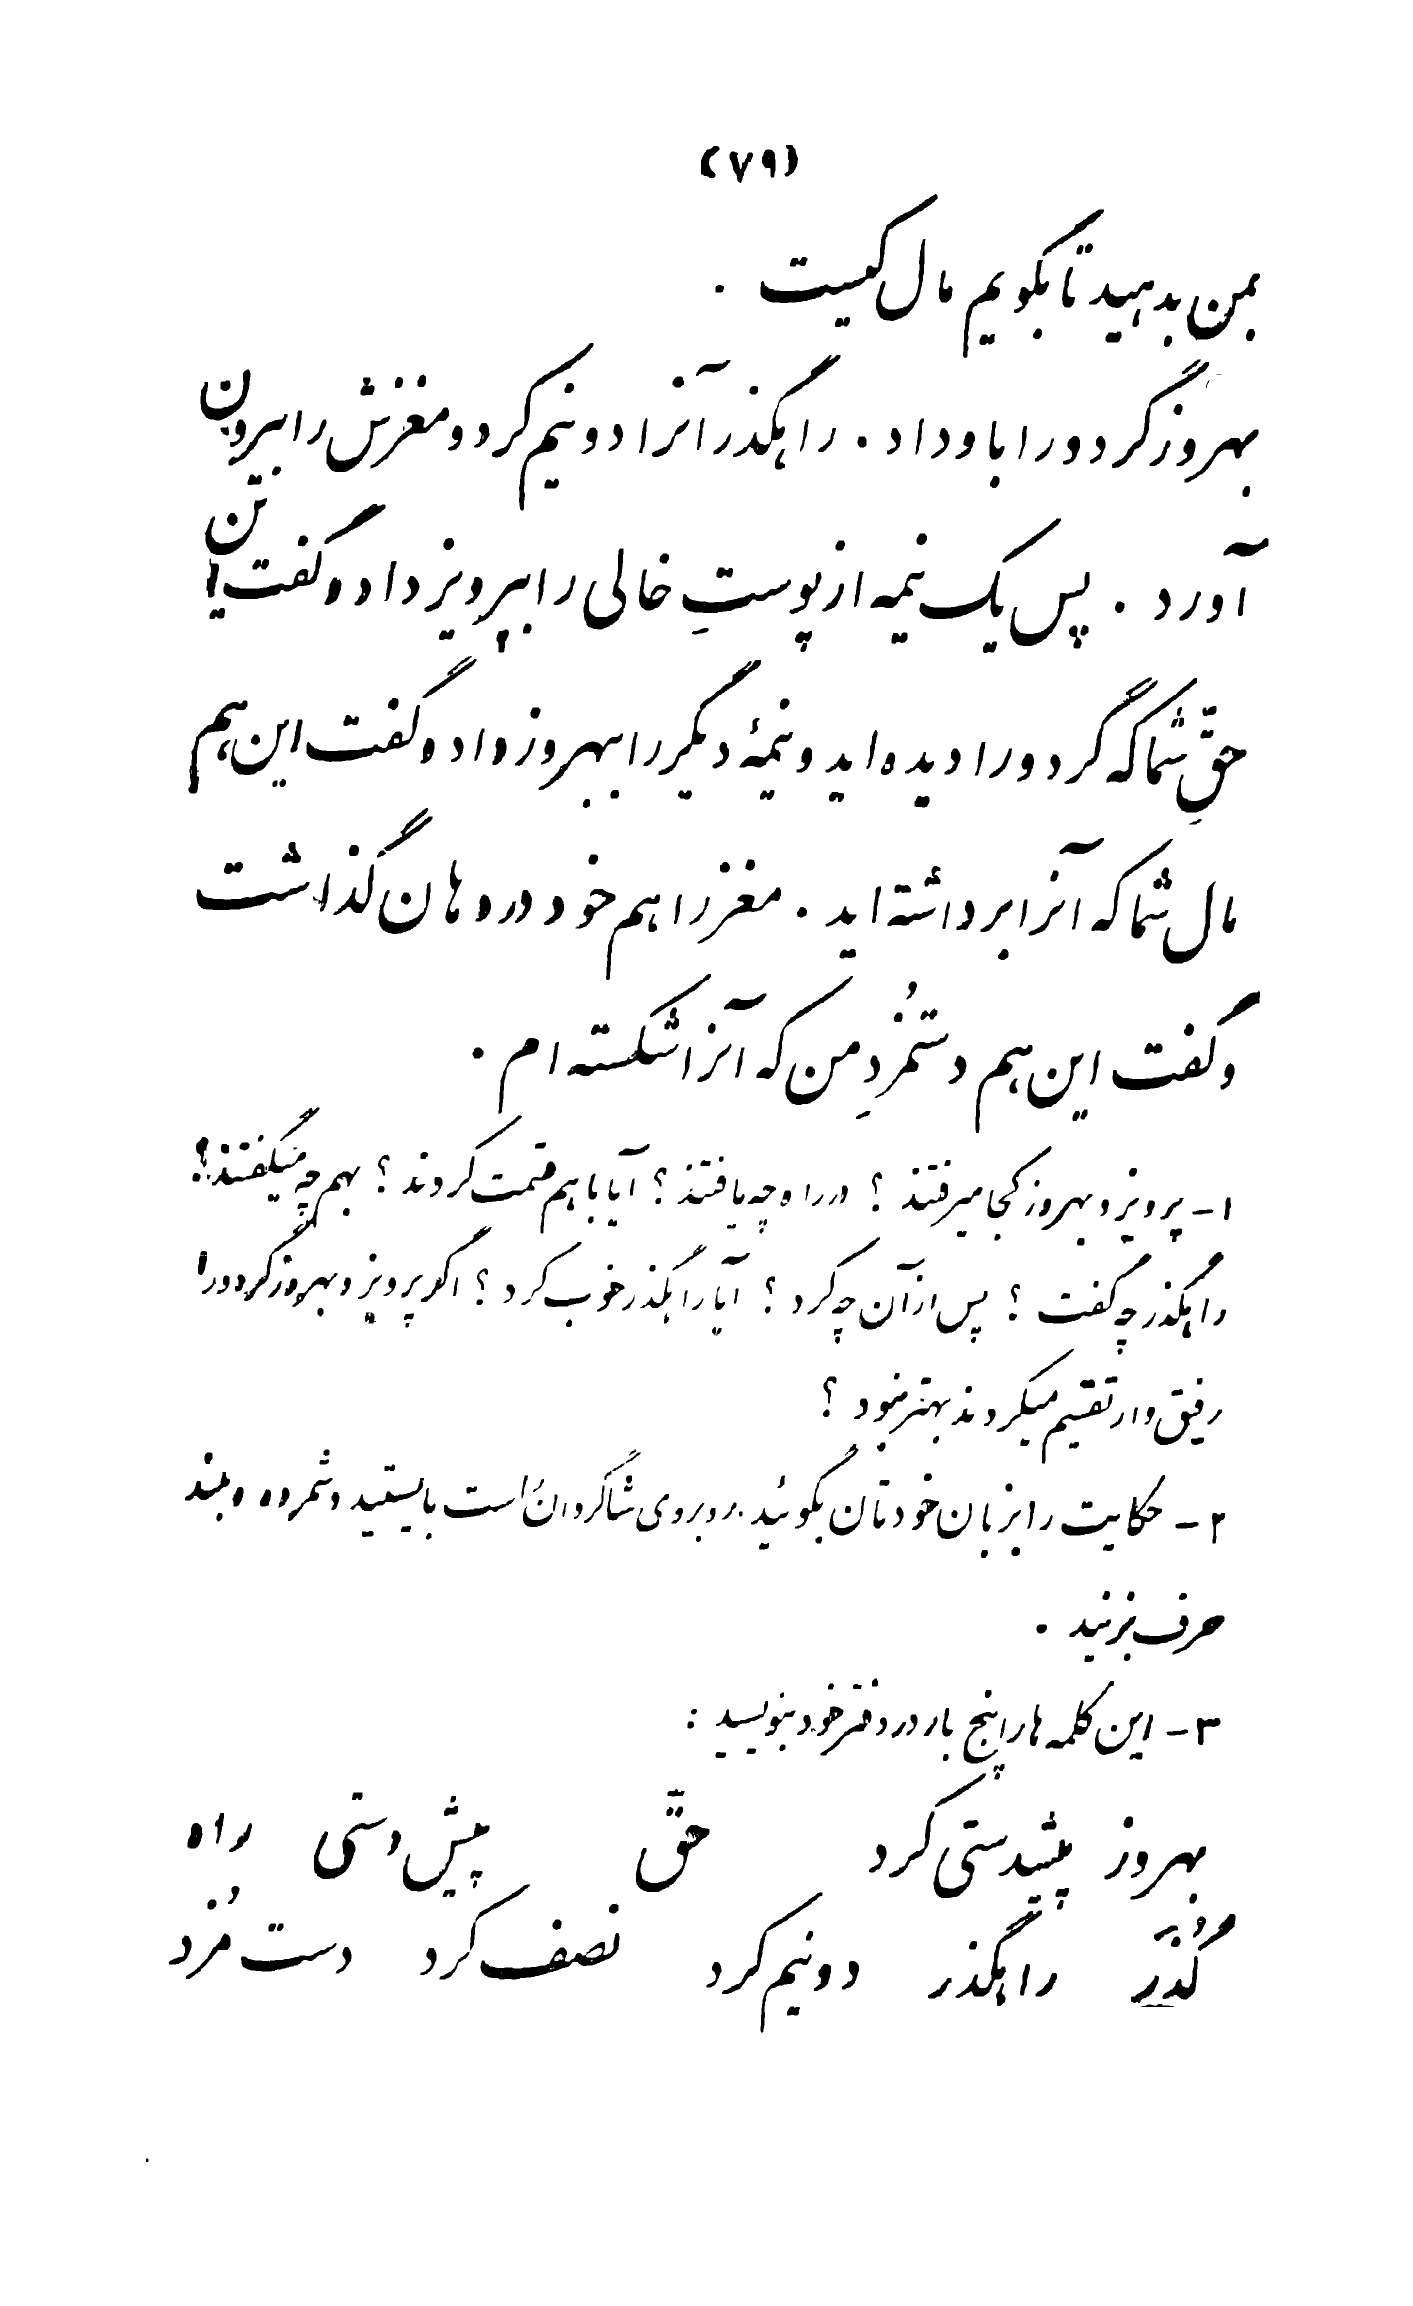 (۷۹)
بمن بدهید تا بگویم مال کیست .
بهروز گردو را باو داد . راهگذر آنرا دو نیم کرد و مغزش را بیرون
آورد . پس یک نیمه از پوستِ خالی را بپرویز داد و گفت این
حقِّ شما که گردو را دیده‌اید و نیمهٔ دیگر را ببهروز داد و گفت این هم
مال شما که آنرا برداشته‌اید . مغز را هم خود در دهان گذاشت
و گفت این هم دستمُزدِ من که آنرا شکسته‌ام .
۱- پرویز و بهروز کجا میرفتند ؟ در راه چه یافتند ؟ آیا با هم قسمت کردند ؟ بهم چه میگفتند ؟
راهگذر چه گفت ؟ پس از آن چه کرد ؟ آیا راهگذر خوب کرد ؟ اگر پرویز و بهروز گردو را
رفیق وار تقسیم میکردند بهتر نبود ؟
۲- حکایت را بزبان خودتان بگوئید . روبروی شاگردان راست بایستید و شمرده و بلند
حرف بزنید .
۳- این کلمه ها را پنج بار در دفتر خود بنویسید :
بهروز پیشدستی کرد حقّ پیش دستی راه
گُذَر راهگذر دو نیم کرد نصف کرد دست مُزد